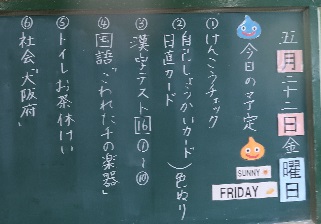 五月二十二日金曜日
SUNNY
FRIDAY
今日の予定
①けんこうチェック
②自己しょうかいカード
日直カード
色ぬり
③漢字テスト16①~⑩
④国語「こわれた千の楽器」
⑤トイレお茶休けい
⑥社会「大阪府」